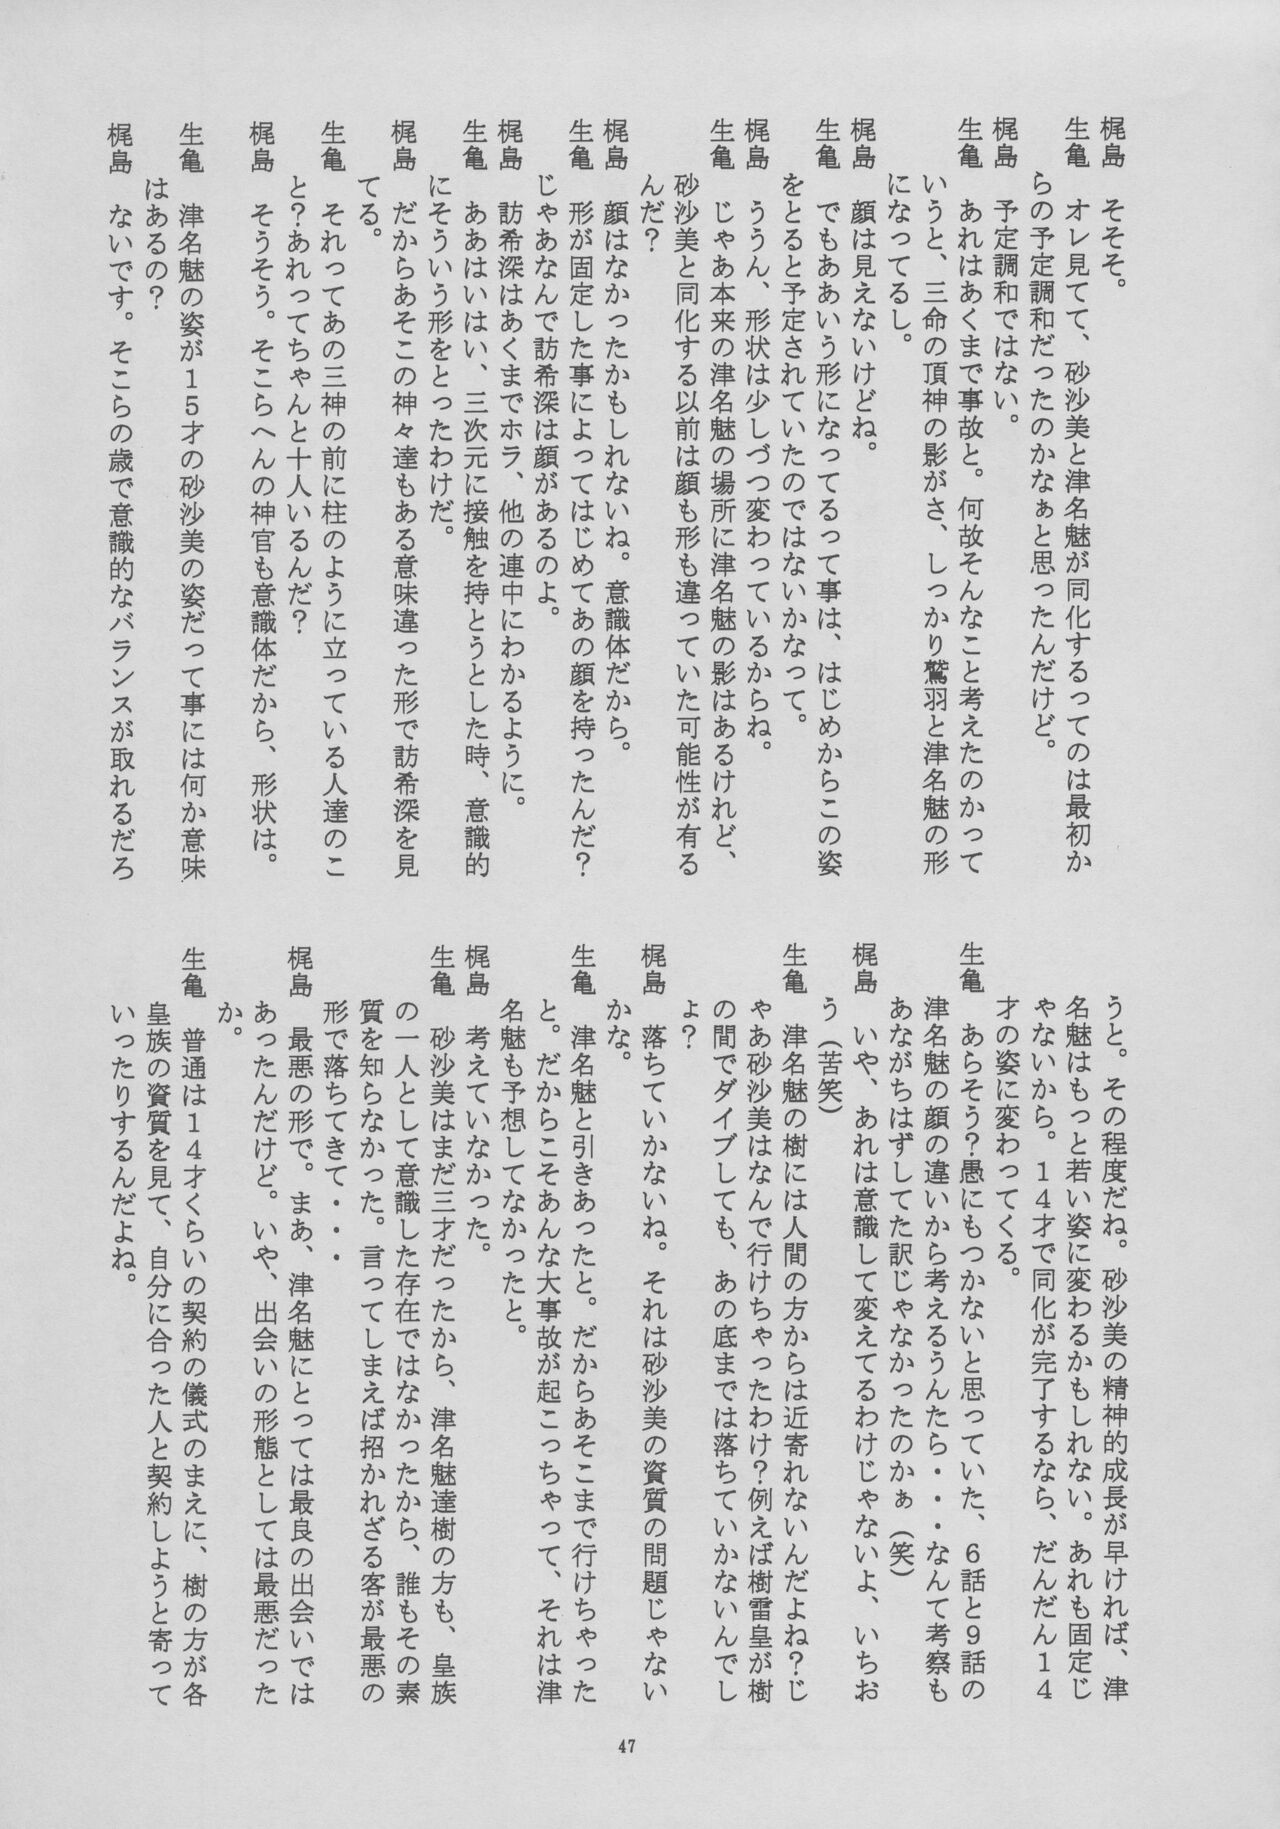 梶島　そそそ。
生亀　オレ見てて、砂沙美と津名魅が同化するってのは最初か
らの予定調和だったのかなぁと思ったんだけど。
梶島　予定調和ではない。
生亀　あれはあくまで事故と。何故そんなこと考えたのかって
いうと、三命の頂神の影がさ、しっかり鷲羽と津名魅の形
になってるし。
梶島　顔は見えないけどね。
生亀　でもああいう形になってるって事は、はじめからこの姿
をとると予定されていたのではないかなって。
梶島　ううん、形状は少しづつ変わっているからね。
生亀　じゃあ本来の津名魅の場所に津名魅の影はあるけれど、
砂沙美と同化する以前は顔も形も違っていた可能性が有る
んだ？
梶島　顔はなかったかもしれないね。意識体だから。
生亀　形が固定した事によってはじめてあの顔を持ったんだ？
じゃあなんで訪希深は顔があるのよ。
梶島　訪希深はあくまでホラ、他の連中にわかるように。
生亀　ああはいはい、三次元に接触を持とうとした時、意識的
にそういう形をとったわけだ。
梶島　だからあそこの神々達もある意味違った形で訪希深を見
てる。
生亀　それってあの三神の前に柱のように立っている人達のこ
と？あれってちゃんと十人いるんだ？
梶島　そうそう。そこらへんの神官も意識体だから、形状は。
生亀　津名魅の姿が１５才の砂沙美の姿だって事には何か意味
はあるの？
梶島　ないです。そこらの歳で意識的なバランスが取れるだろ
うと。その程度だね。砂沙美の精神的成長が早ければ、津
名魅はもっと若い姿に変わるかもしれない。あれも固定じ
ゃないから。１４才で同化が完了するなら、だんだん１４
才の姿に変わってくる。
生亀　あらそう？愚にもつかないと思っていた、６話と９話の
津名魅の顔の違いから考えるうんたら・・・なんて考察も
あながちはずしてた訳じゃなかったのかぁ（笑）
梶島　いや、あれは意識して変えてるわけじゃないよ、いちお
う（苦笑）
生亀　津名魅の樹には人間の方からは近寄れないんだよね？じ
ゃあ砂沙美はなんで行けちゃったわけ？例えば樹雷皇が樹
の間でダイブしても、あの底までは落ちていかないんでし
ょ？
梶島　落ちていかないね。それは砂沙美の資質の問題じゃない
かな。
生亀　津名魅と引きあったと。だからあそこまで行けちゃった
と。だからこそあんな大事故が起こっちゃって、それは津
名魅も予想してなかったと。
梶島　考えていなかった。
生亀　砂沙美はまだ三才だったから、津名魅達樹の方も、皇族
の一人として意識した存在ではなかったから、誰もその素
質を知らなかった。言ってしまえば招かれざる客が最悪の
形で落ちてきて・・・
梶島　最悪の形で。まあ、津名魅にとっては最良の出会いでは
あったんだけど。いや、出会いの形態としては最悪だった
か。
生亀　普通は１４才くらいの契約の儀式のまえに、樹の方が各
皇族の資質を見て、自分に合った人と契約しようと寄って
いったりするんだよね。
47